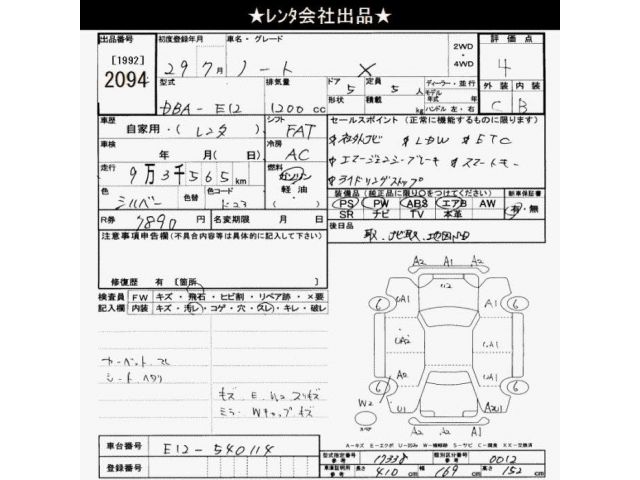 ★レンタ会社出品★
出品番号 初度登録年月 車名・グレード 2WD・4WD 評価点
[1992] 2094 29年7月 ノート X 4
型式 排気量 ドア 定員 ディーラー・並行 外装 内装
DBA-E12 1200cc 5 5人 モデル年式 年 C B
形状 積載 kg ハンドル 左・右
車歴 自家用・(レンタ) シフト FAT セールスポイント (正常に機能するものに限ります)
車検 年 月(日) 冷房 AC 社外ナビ LDW ETC
走行 9万3千565km 燃料 ガソリン・軽油 エマージェンシーブレーキ スマートキー
色 シルバー 色コード K23 アイドリングストップ
装備品 (純正品に限り○をつけてください) 新車保証書
PS PW ABS エアB AW 有・無
SR ナビ TV 本革
R券 7890円 名変期限 月 日 後日品 取、ナビ取、
注意事項申告欄(不具合内容等は具体的に記入して下さい)
修復歴 有 [箇所
検査員記入欄 FW キズ・飛石・ヒビ割・リペア跡・×要
内装 キズ・汚レ・コゲ・穴・スレ・キレ・破レ
カーペット スレ
シート ヘタリ
キズ E U2 スリキズ
ミラー Wキャップ キズ
A2 A1 A2
6 6
A1 12 A1
A2 A1
6 A2 A1 6
W2 U1 A2U1
スペア
A2 A1 A2
A-キズ E-エクボ U-凹み W-補修跡 S-サビ C-腐食 XX-交換済
車台番号 E12-540114
登録番号
型式指定番号 参考 17338 類別区分番号 参考 0012
車庫証明用 参考 長さ 410cm 幅 169cm 高さ 152cm